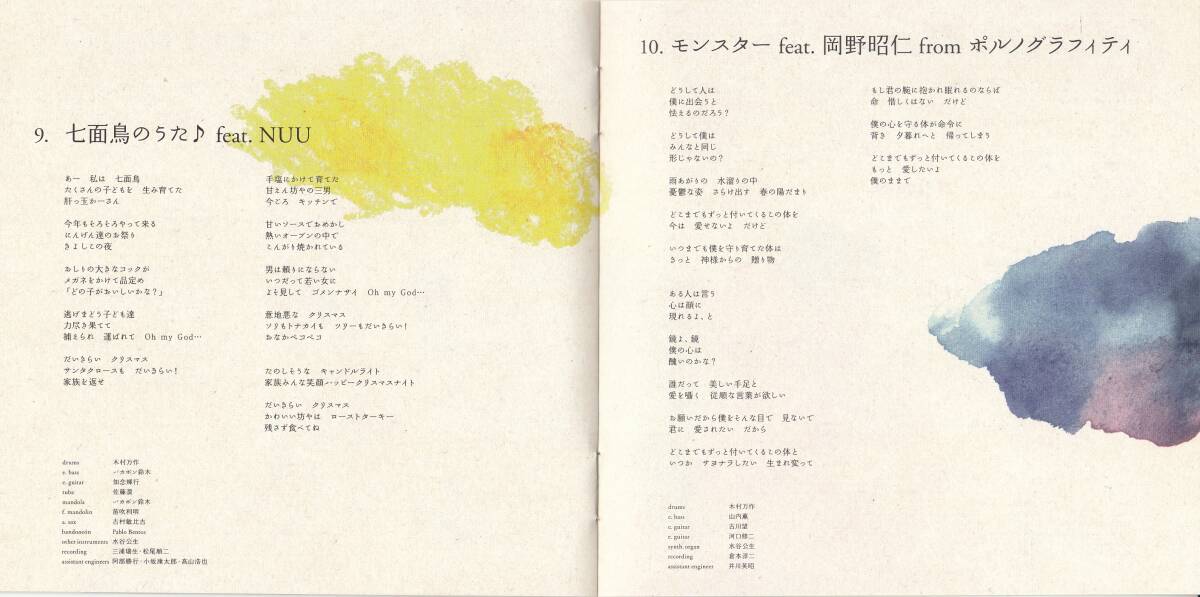 9. 七面鳥のうた♪ feat. NUU
あー　私は　七面鳥
たくさんの子どもを　生み育てた
肝っ玉かーさん
今年もそろそろやって来る
にんげん達のお祭り
きよしこの夜
おしりの大きなコックが
メガネをかけて品定め
「どの子がおいしいかな?」
逃げまどう子ども達
力尽き果てて
捕えられ　運ばれて　Oh my God…
だいきらい　クリスマス
サンタクロースも　だいきらい!
家族を返せ
手塩にかけて育てた
甘えん坊やの三男
今ごろ　キッチンで
甘いソースでおめかし
熱いオーブンの中で
こんがり焼かれている
男は頼りにならない
いつだって若い女に
よそ見して　ゴメンナサイ　Oh my God…
意地悪な　クリスマス
ソリもトナカイも　ツリーもだいきらい!
おなかペコペコ
たのしそうな　キャンドルライト
家族みんな笑顔ハッピークリスマスナイト
だいきらい　クリスマス
かわいい坊やは　ローストターキー
残さず食べてね
drums 木村万作
e. bass バカボン鈴木
e. guitar 知念輝行
tuba 佐藤潔
mandola バカボン鈴木
f. mandolin 笛吹利明
a. sax 古村敏比古
bandoneón Pablo Bentos
other instruments 水谷公生
recording 三浦瑞生・松尾順二
assistant engineers 阿部勝行・小坂康太郎・高山浩也
10. モンスター feat. 岡野昭仁 from ポルノグラフィティ
どうして人は
僕に出会うと
怯えるのだろう?
どうして僕は
みんなと同じ
形じゃないの?
雨あがりの　水溜りの中
憂鬱な姿　さらけ出す　春の陽だまり
どこまでもずっと付いてくるこの体を
今は　愛せないよ　だけど
いつまでも僕を守り育てた体は
きっと　神様からの　贈り物
ある人は言う
心は顔に
現れるよ、と
鏡よ、鏡
僕の心は
醜いのかな?
誰だって　美しい手足と
愛を囁く　従順な言葉が欲しい
お願いだから僕をそんな目で　見ないで
君に　愛されたい　だから
どこまでもずっと付いてくるこの体と
いつか　サヨナラしたい　生まれ変って
もし君の腕に抱かれ眠れるのならば
命　惜しくはない　だけど
僕の心を守る体が命令に
背き　夕暮れへと　帰ってしまう
どこまでもずっと付いてくるこの体を
もっと　愛したいよ
僕のままで
drums 木村万作
e. bass 山内薫
e. guitar 古川望
e. guitar 河口修二
synth. organ 水谷公生
recording 倉本淳二
assistant engineer 井川英昭